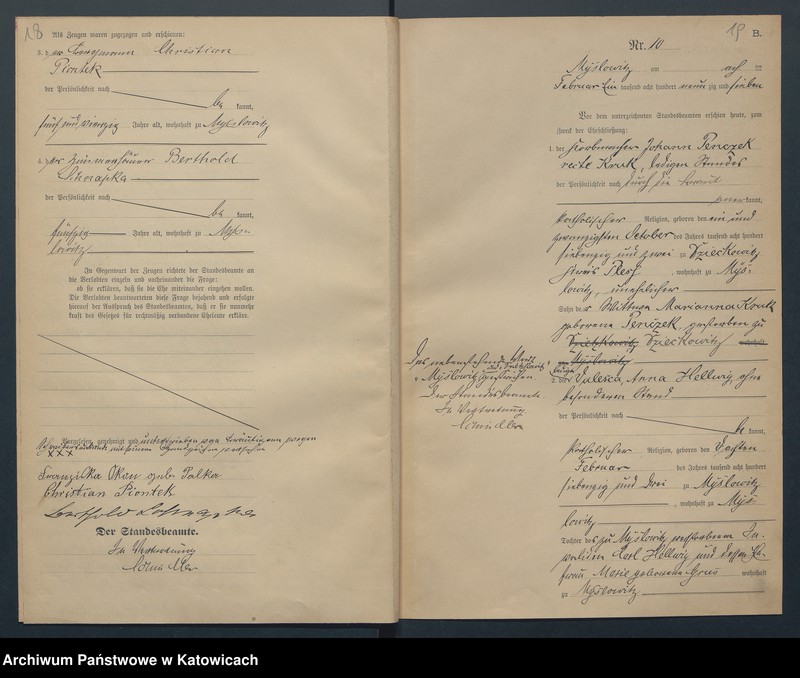 18
Als Zeugen waren zugezogen und erschienen:
3. der Christian
Piontek
der Persönlichkeit nach
be kannt,
fünf und vierzig Jahre alt, wohnhaft zu Myslowitz
4. der Zimmerhäuer Berthold
der Persönlichkeit nach
be kannt,
fünfzig Jahre alt, wohnhaft zu Myslo-
witz
In Gegenwart der Zeugen richtete der Standesbeamte an
die Verlobten einzeln und nacheinander die Frage:
ob sie erklären, daß sie die Ehe miteinander eingehen wollen.
Die Verlobten beantworteten diese Frage bejahend und erfolgte
hierauf der Ausspruch des Standesbeamten, daß er sie nunmehr
kraft des Gesetzes für rechtmäßig verbundene Eheleute erkläre.
Vorgelesen, genehmigt und unterschrieben vom Bräutigam wegen
mit seinem Handzeichen versehen
XXX
Franziska Okon geb. Palka
Christian Piontek
Berthold
Der Standesbeamte.
In Vertretung
19
B.
Nr. 10
Myslowitz am acht ten
Februar Ein tausend acht hundert neun zig und sieben
Vor dem unterzeichneten Standesbeamten erschien heute, zum
Zweck der Eheschließung:
1. der Johann Penczek
recte Kruk, ledigen Standes
der Persönlichkeit nach durch die Braut
kannt,
katholischer Religion, geboren den ein und
zwanzigsten October des Jahres tausend acht hundert
siebenzig und zwei zu Dzieckowitz
Kreis Pless, wohnhaft zu Mys-
lowitz, unehelicher
Sohn der Wittwe Marianna Kruk
geborene Penczek, gestorben zu
Dzieckowitz
Myslowitz
Das nebenstehende
Myslowitz gestrichen.
Der Standesbeamte
In Vertretung
2. die Valesca, Anna Hellwig, ohne
besonderen Stand
der Persönlichkeit nach
be kannt,
katholischer Religion, geboren den achten
Februar des Jahres tausend acht hundert
siebenzig und drei zu Myslowitz
, wohnhaft zu Mys-
lowitz
Tochter des zu Myslowitz verstorbenen In-
validen Carl Hellwig und dessen Ehe-
frau Marie geborene wohnhaft
zu Myslowitz
Archiwum Państwowe w Katowicach